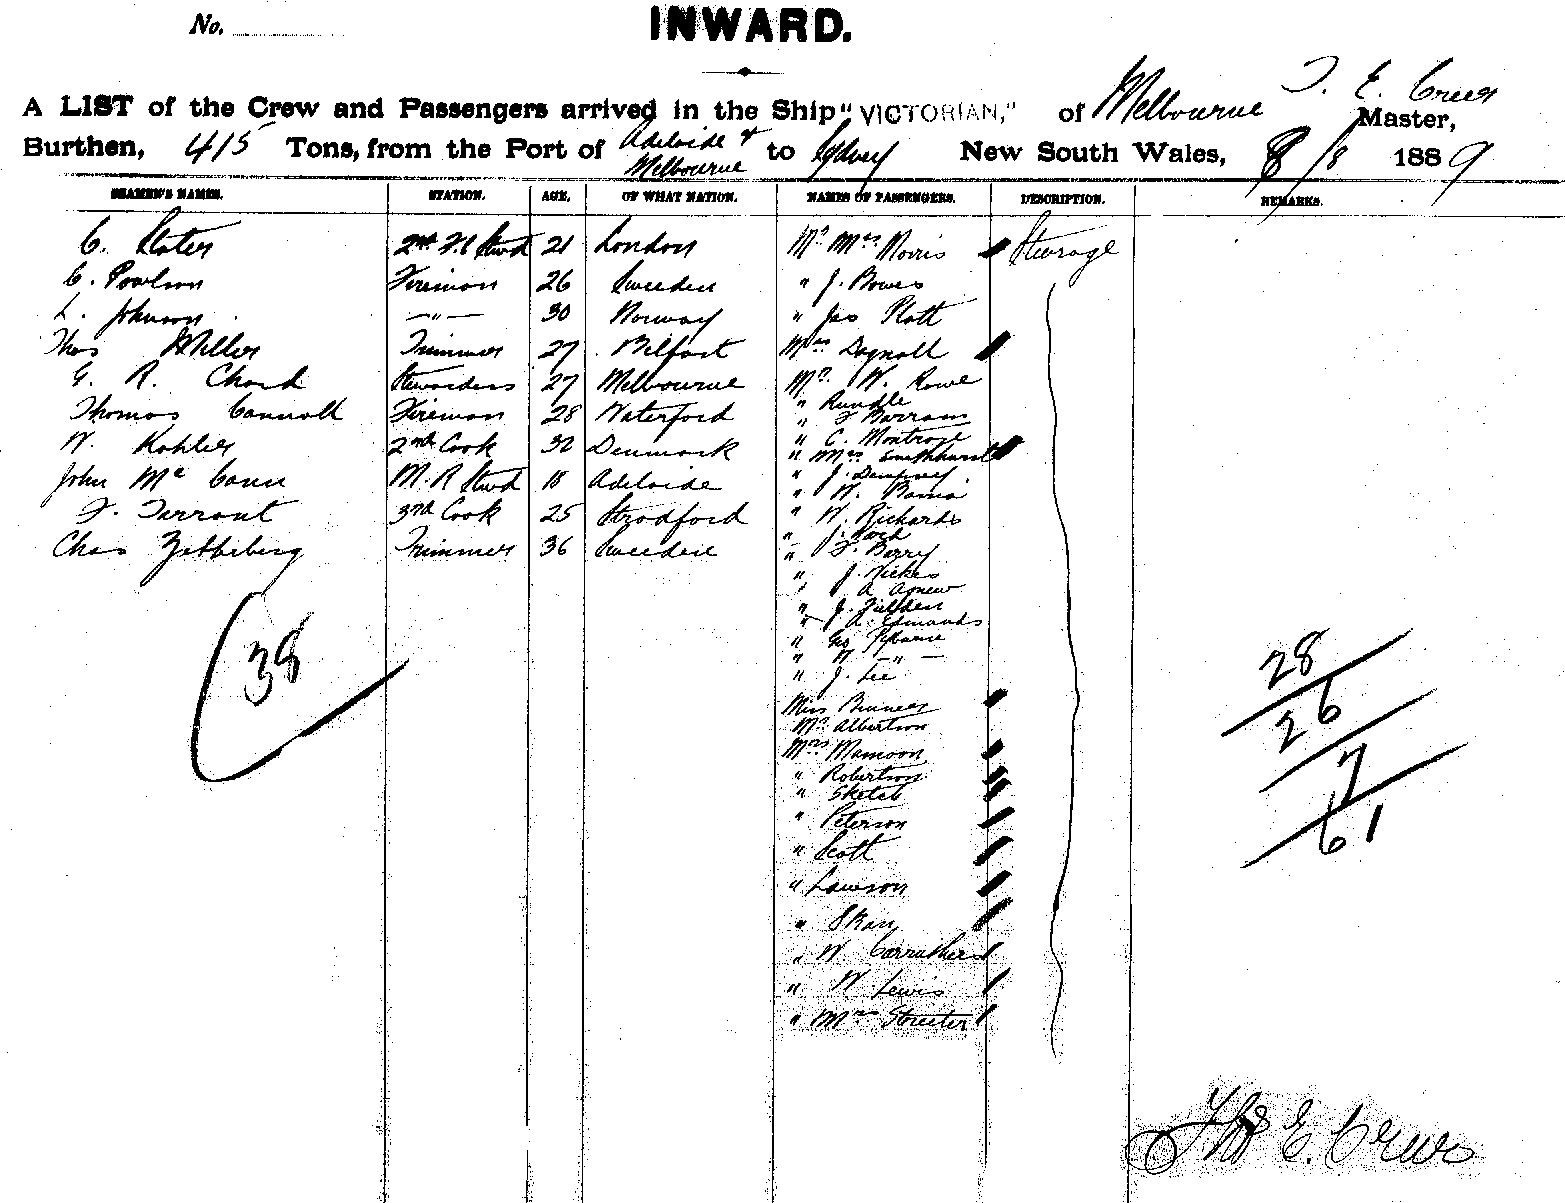 No.
INWARD.
A LIST of the Crew and Passengers arrived in the Ship "VICTORIAN," of Melbourne T. E. Creer Master,
Burthen, 415 Tons, from the Port of Adelaide & Melbourne to Sydney New South Wales, 8/8 1889
SEAMEN'S NAMES. STATION. AGE. OF WHAT NATION. NAMES OF PASSENGERS. DESCRIPTION. REMARKS.
C. Slater 2nd F.C Stwd 21 London Mr Mrs Norris Steerage
C. Poulson Fireman 26 Sweeden " J. Bowes
L. Johnson —"— 30 Norway " Jas Platt
Thos Miller Trimmer 27 Bilfast Mrs Dagnall
G. R. Chard Stewardess 27 Melbourne Mr W. Rowe
" Rundle
Thomas Connoll Fireman 28 Waterford " F Barrans
" C. Montrose
W. Kohler 2nd Cook 32 Denmark " Mrs Smithhurst
John Mc Cann M. R Stwd 18 Adelaide " J. Dempsey
" W.
F. Tarrant 3rd Cook 25 Stradford " W. Richards
" J.
Chas Trimmer 36 Sweeden " F. Barry
" J. Hickes
" A Agnew
" J. Fielden
" J. A. Edmonds
" Geo Pearce
" W —"—
" J. Lee
38
Miss
Mr Albertson
Mrs Mamoon
" Robertson
" Sketch
" Peterson
" Scott
" Lawson
" Skan
" W Carruthers
" W Lewis
" Mrs Streeter
28
26
7
61
Thos E. Creer